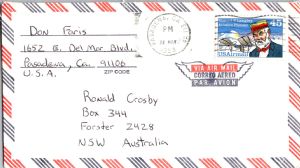 Don Faris
1652 E. Del Mar Blvd.
Pasadena, Ca. 91106
U.S.A.
ZIP CODE
PM
45
USAirmail
VIA AIR MAIL
CORREO AEREO
PAR AVION
Ronald Crosby
Box 344
Forster 2428
NSW Australia